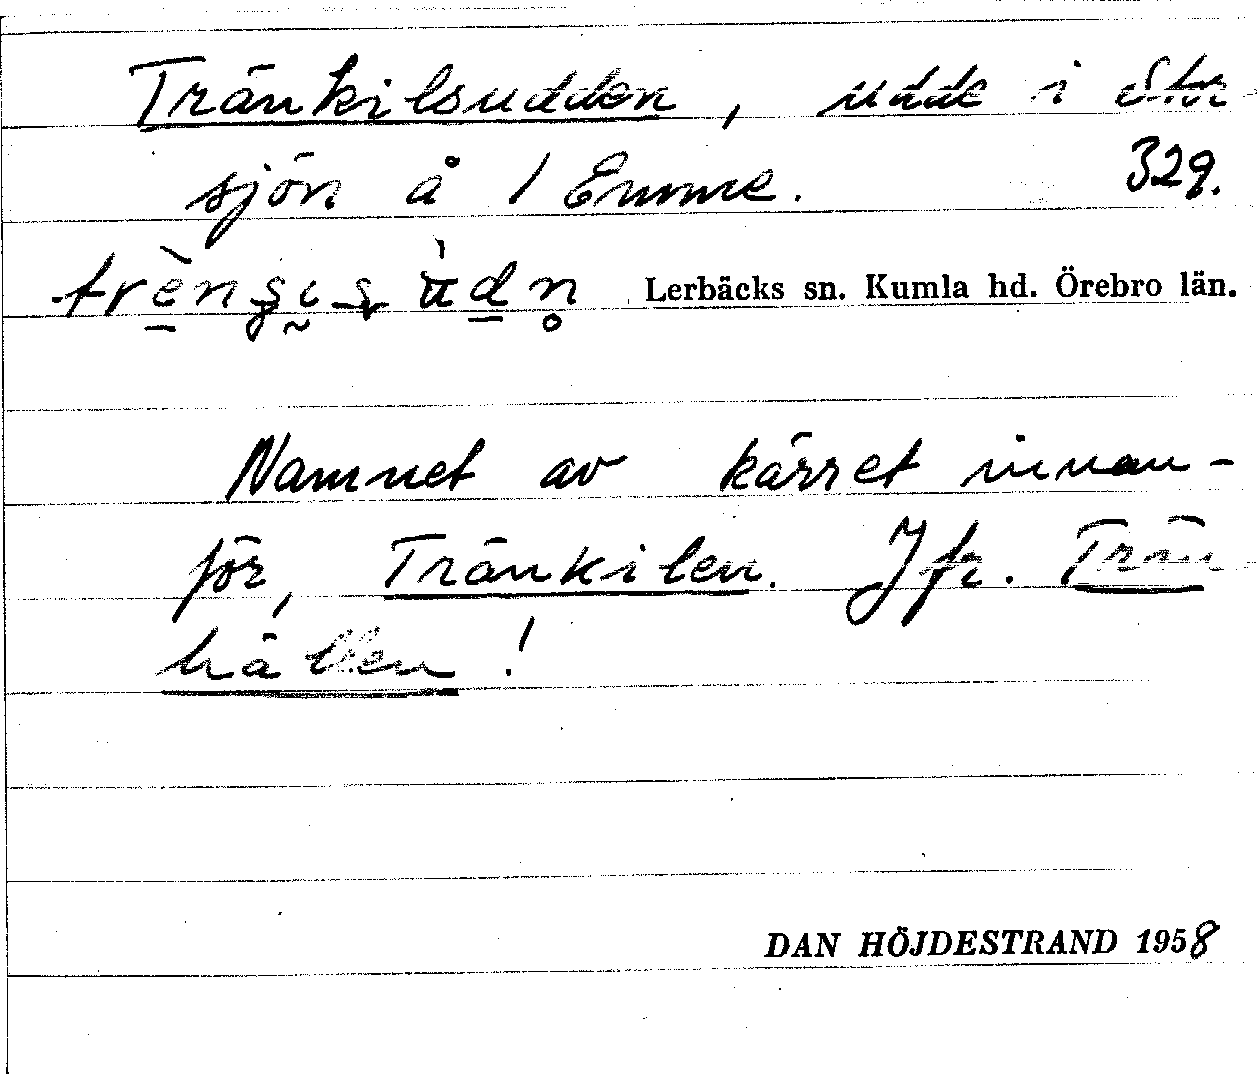 Tränkilsudden, udde i Stor-
sjön å 1 Emme. 329.
Lerbäcks sn. Kumla hd. Örebro län.
Namnet av kärret innan-
för, Tränkilen. Jfr. Trän-
hällen!
DAN HÖJDESTRAND 1958